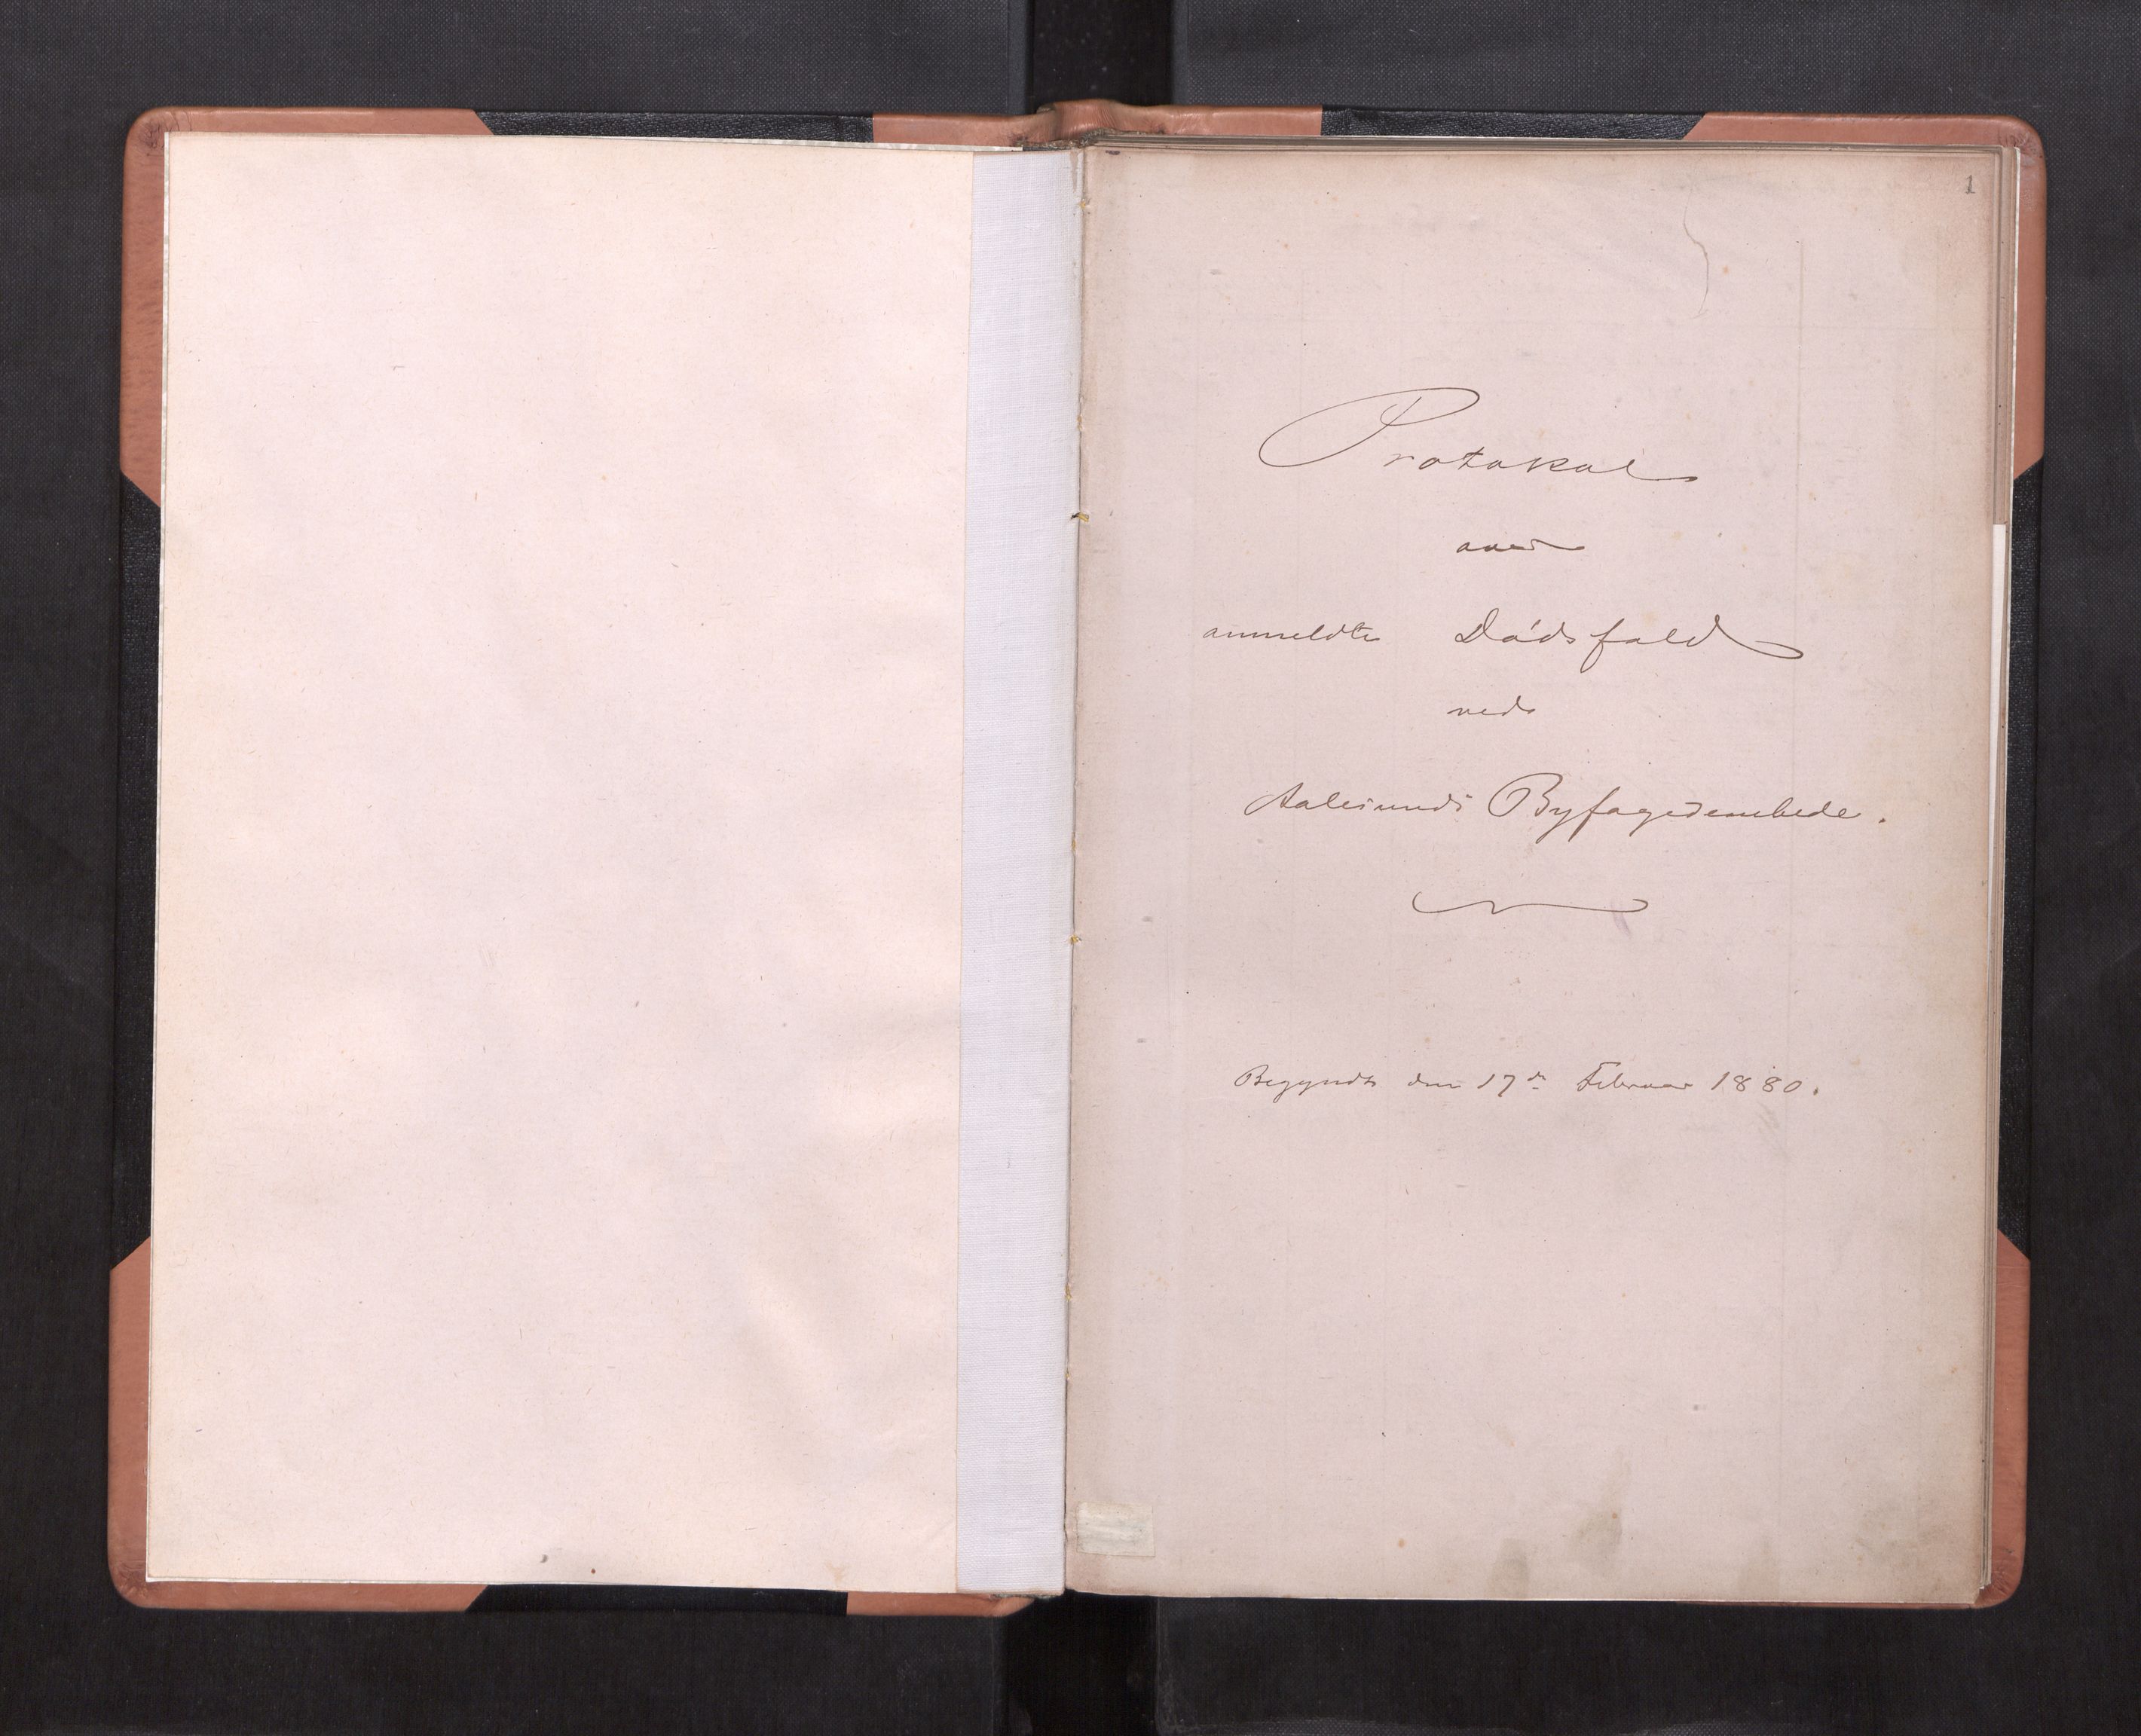 1
Protokol
over
anmeldte Dødsfald
ved
Aalesunds Byfogedembede.
Begyndt den 17de Februar 1880.